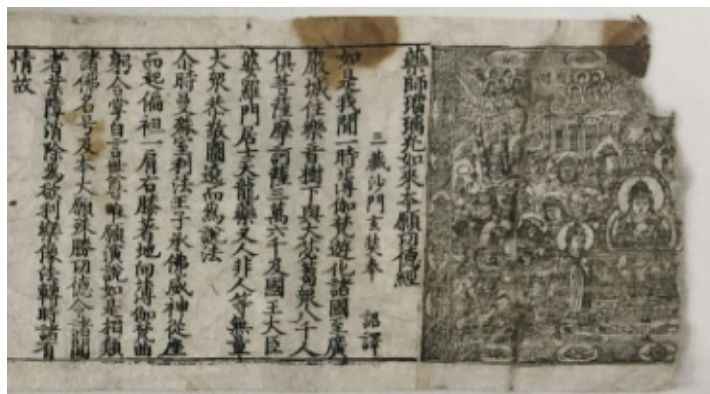 藥師瑠璃光如來本願功德經
三藏沙門玄奘奉　詔譯
如是我聞一時薄伽梵遊化諸國至廣
嚴城住樂音樹下與大苾蒭衆八千人
俱菩薩摩訶薩三萬六千及國王大臣
婆羅門居士天龍藥叉人非人等無量
大衆恭敬圍遶而為說法
尒時曼殊室利法王子承佛威神從座
而起偏袒一肩右膝著地向薄伽梵曲
躬合掌白言世尊唯願演說如是相類
諸佛名号及本大願殊勝功德令諸聞
者業障消除為欲利樂像法轉時諸有
情故